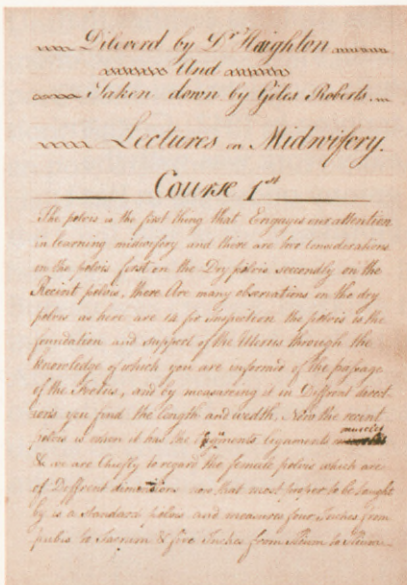 Dileverd by Dr Haighton
And
Taken down by Giles Roberts.
Lectures on Midwifery.
Course 1st
The pelvis is the first thing that Engages our attention
in learning midwifery and there are two considerations
on the pelvis first on the Dry pelvis secondly on the
Recint pelvis, there Are many obsrvations on the dry
pelvis as here are for Inspection the pelvis is the
foundation and support of the Uterus through the
knowledge of which you are informed of the passage
of the Foetus, and by measuring it in Diffrent direct
ions you find the length and wedth, Now the recent
pelvis is when it has the ligaments muscles
& we are Chiefly to regard the female pelvis which are
of Diffrent dimentions now that most proper to be taught
by is a Standard pelvis and measures four Inches from
pubis to Sacrum & five Inches from Ilium to Ilium